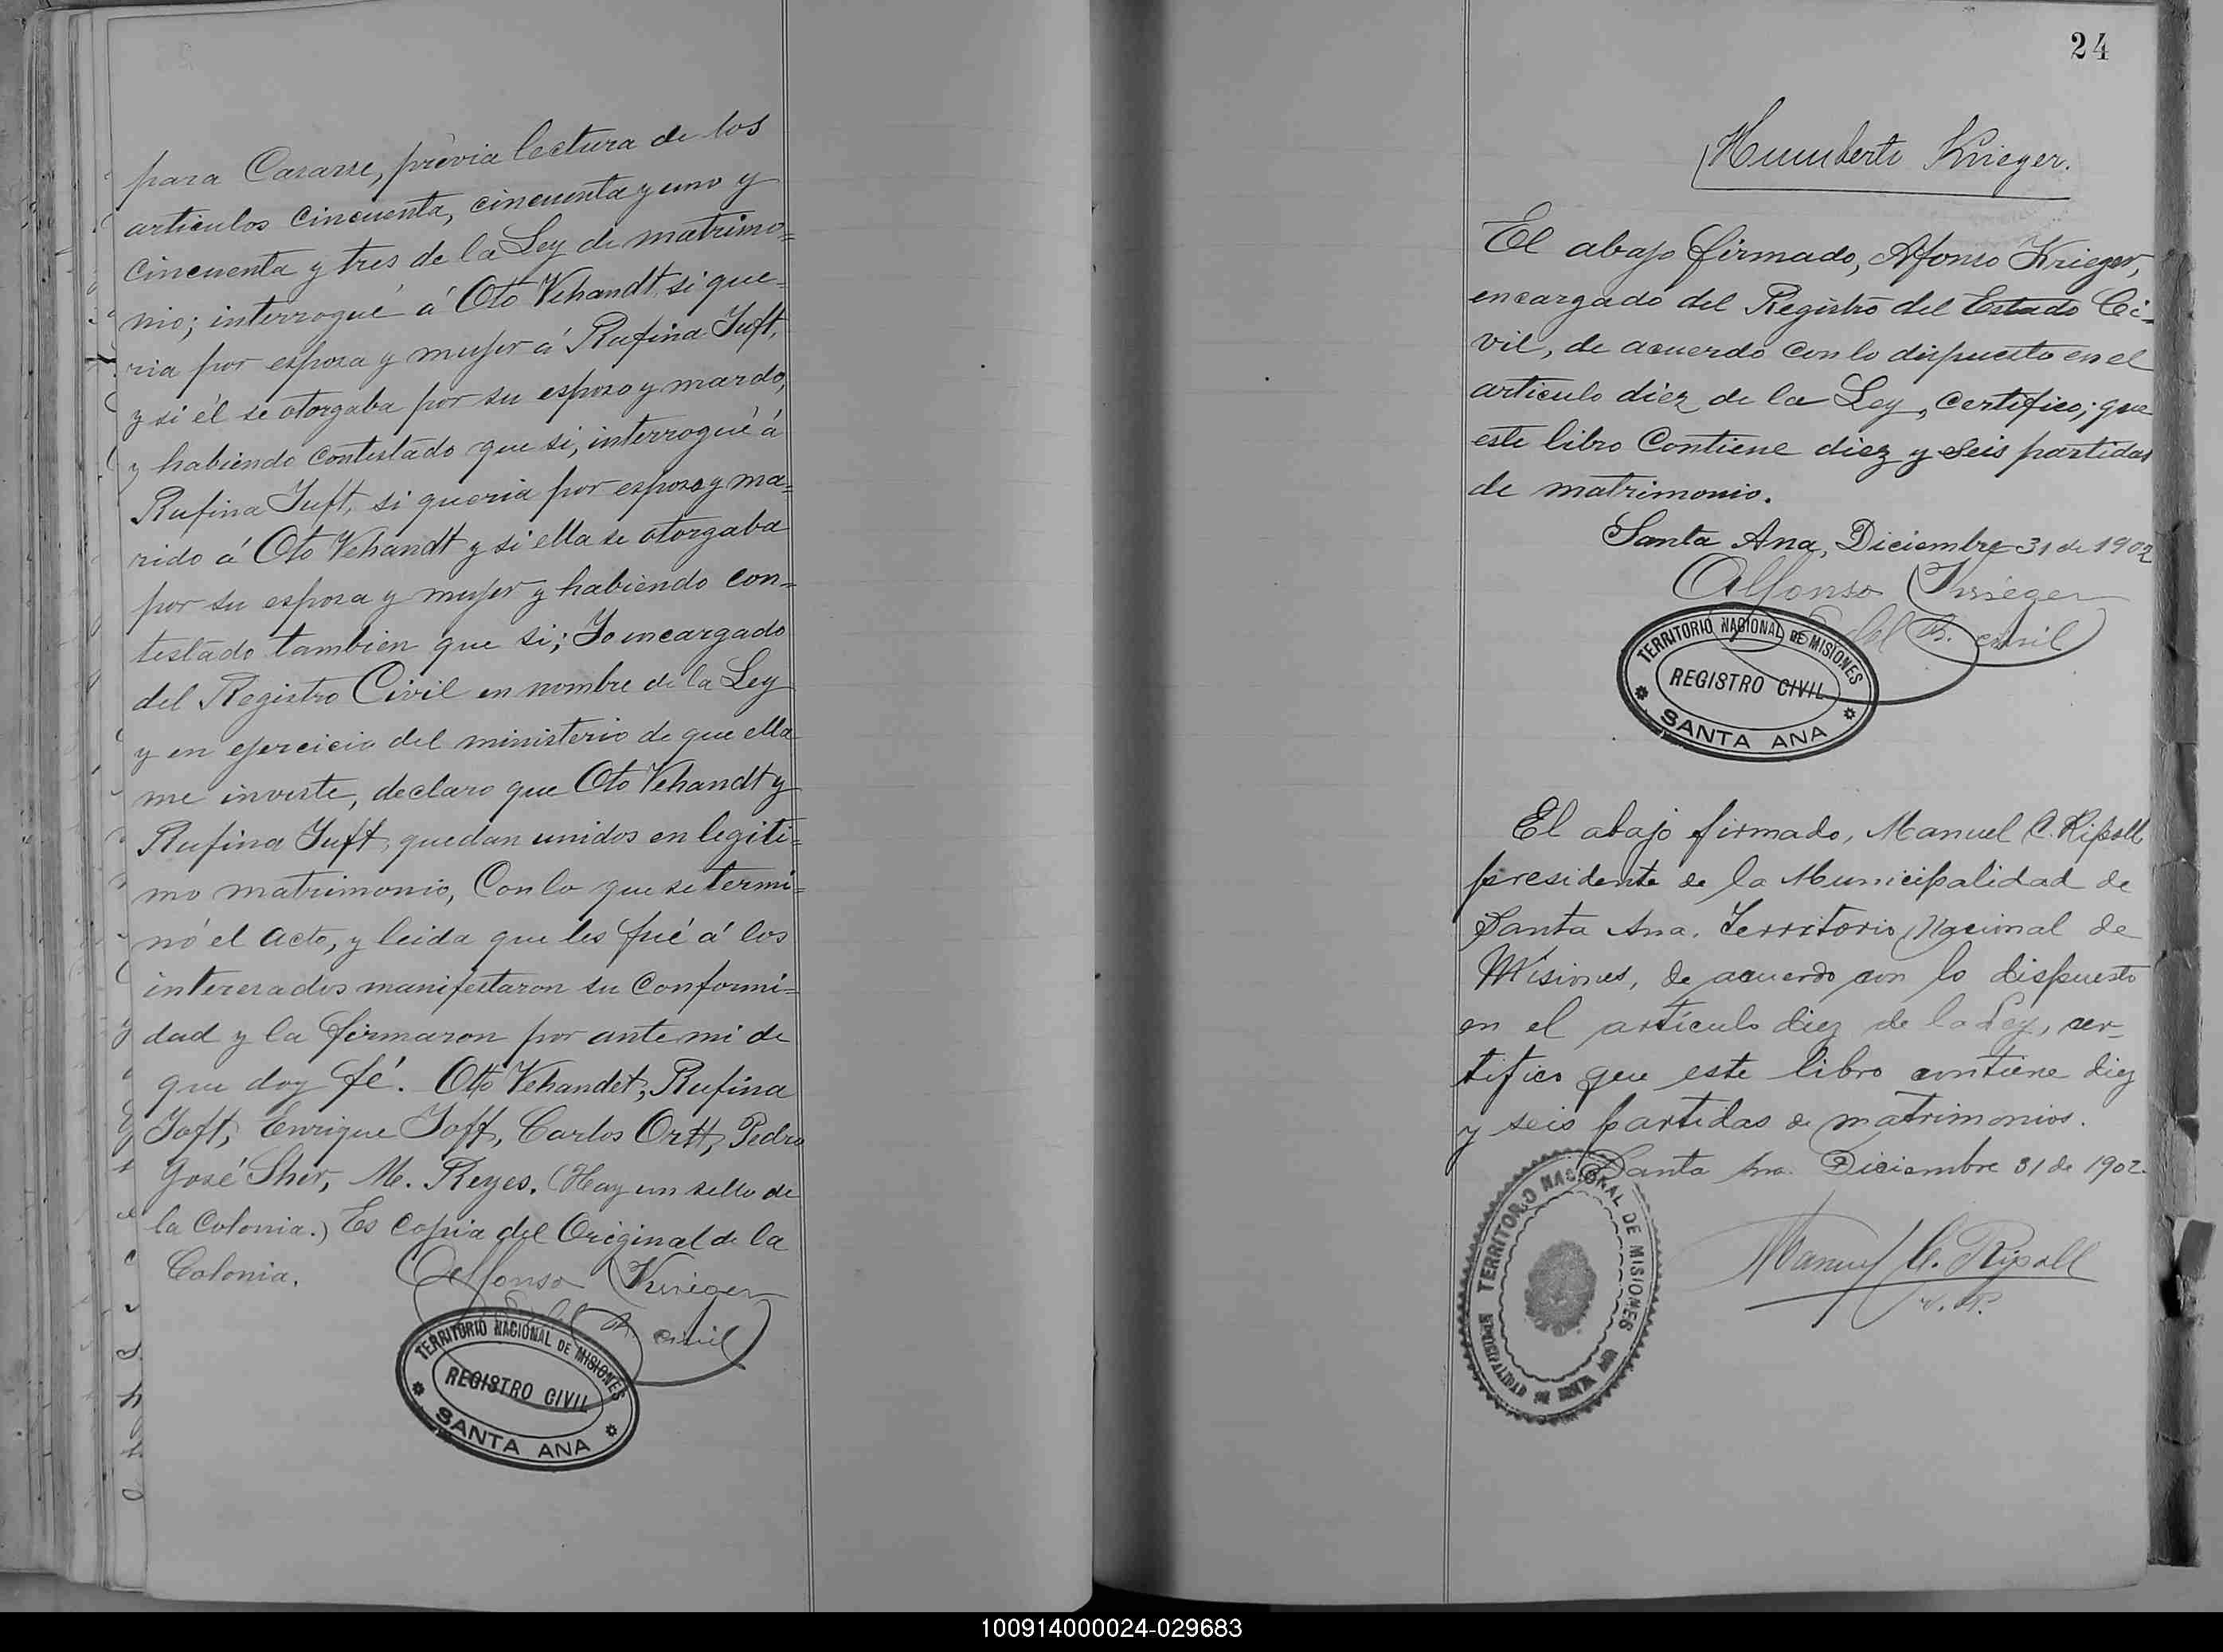 para Casarse, prévia lectura de los
articulos Cincuenta, cincuenta y uno y
cincuenta y tres de la Ley de matrimo=
nio; interrogué á Oto Vehandt si que=
ria por esposa y mujer á Rufina Juft,
y si él se otorgaba por su esposo y mardo,
y habiendo contestado que si, interrogué á
Rufina Juft, si queria por esposo y ma=
rido á Oto Vehandt y si ella se otorgaba
por su esposa y mujer y habiendo con=
testado tambien que si; Yo encargado
del Registro Civil en nombre de la Ley
y en ejercicio del ministerio de que ella
me inviste, declaro que Oto Vehandt y
Rufina Juft, quedan unidos en legiti=
mo matrimonio, Con lo que se termi=
nó el acto, y leida que les fué á los
interesados manifestaron su Conformi=
dad y la firmaron por ante mi de
que doy fé. Otto Vehandet, Rufina
Joft, Enrique Joff, Carlos Ortt, Pedro
José Sher, M. Reyes. (Hay un sello de
la Colonia.) Es Copia del Original de la
Colonia.
Alfonso Krieger
E. del R. civil
TERRITORIO NACIONAL DE MISIONES
REGISTRO CIVIL
SANTA ANA
24
Humberto Krieger.
El abajo firmado, Afonso Krieger,
encargado del Registro del Estado Ci-
vil, de acuerdo con lo dispuesto en el
articulo diez de la Ley, Certifico; que
este libro Contiene diez y seis partidas
de matrimonio.
Santa Ana, Diciembre 31 de 1902
Alfonso Krieger
E. del R. civil
TERRITORIO NACIONAL DE MISIONES
REGISTRO CIVIL
SANTA ANA
El abajo firmado, Manuel C. Ripoll
presidente de la Municipalidad de
Santa Ana. Territorio Nacional de
Misiones, de acuerdo con lo dispuesto
en el artículo diez de la Ley, cer-
tifico que este libro contiene diez
y seis partidas de matrimonios.
Santa Ana. Diciembre 31 de 1902.
TERRITORIO NACIONAL DE MISIONES
MUNICIPALIDAD DE SANTA ANA
Manuel C. Ripoll
100914000024-029683